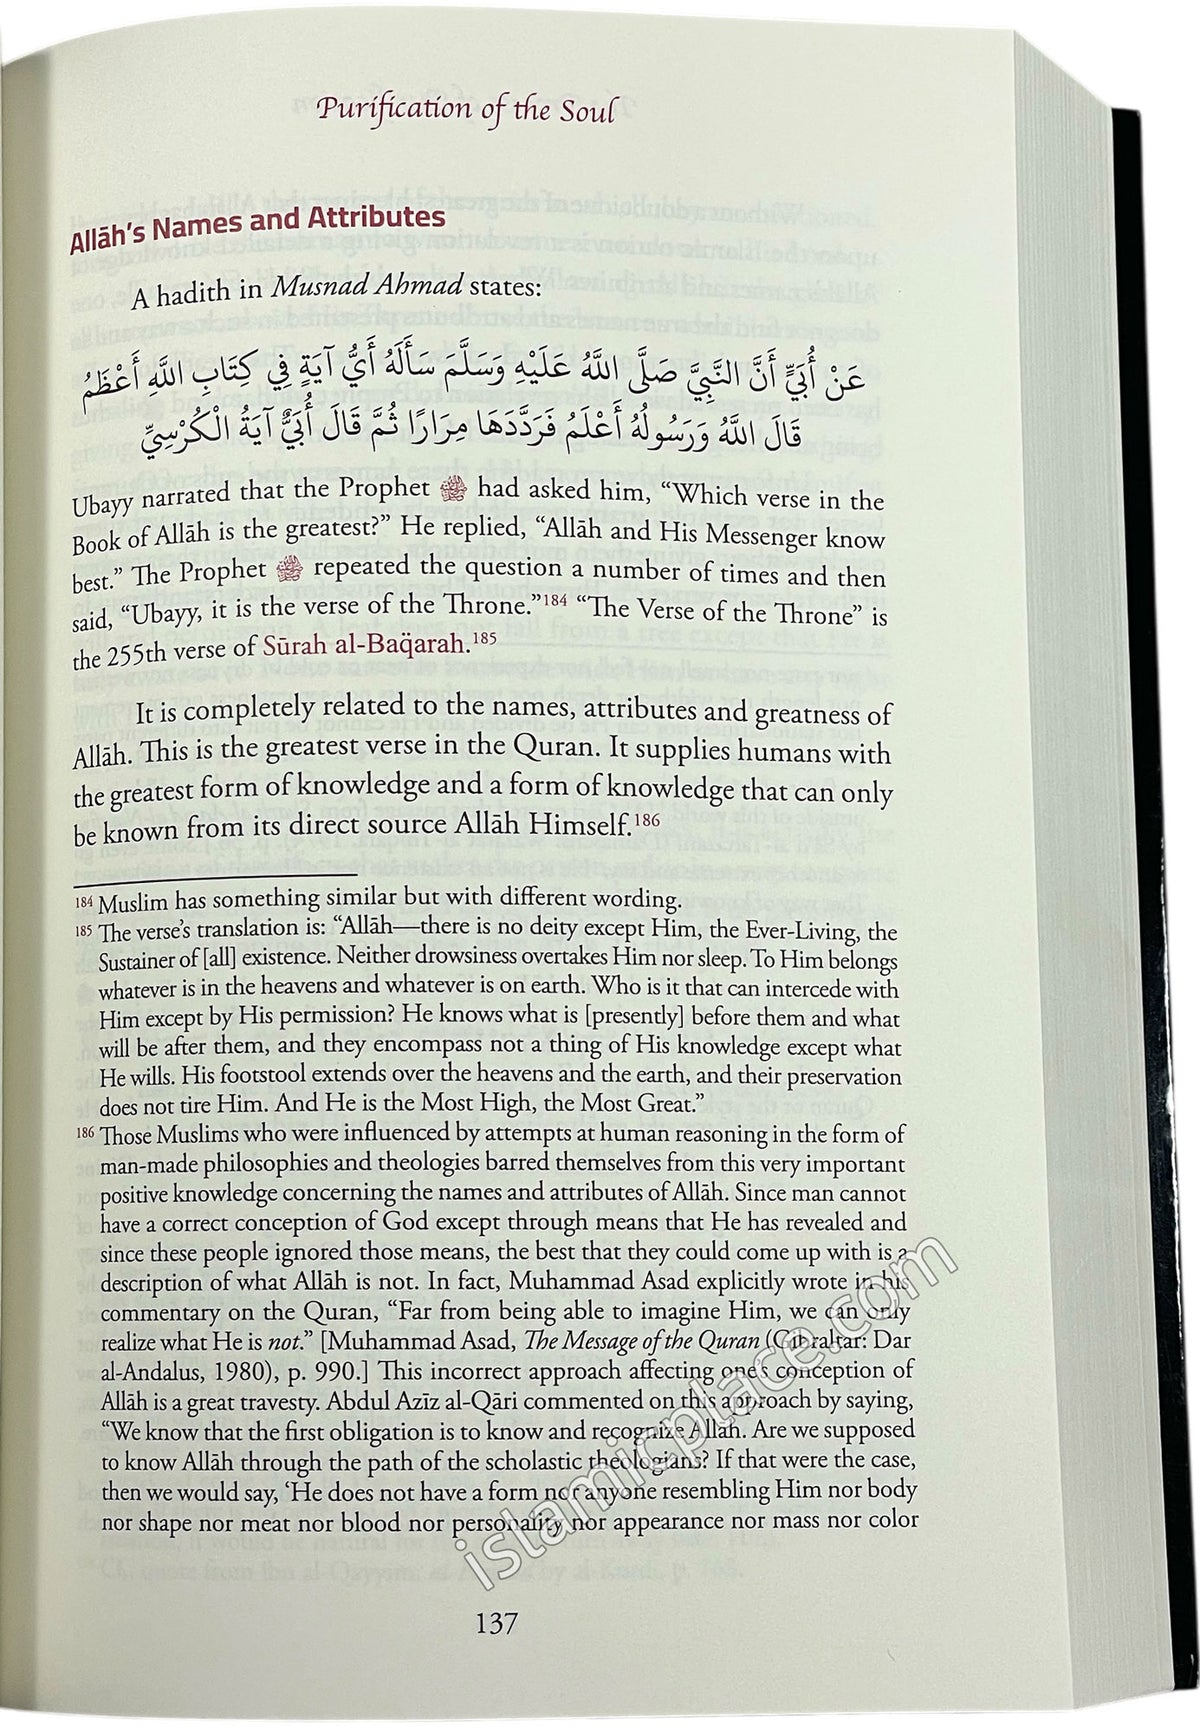 Purification of the Soul
Allāh's Names and Attributes
A hadith in Musnad Ahmad states:
عَنْ أُبَيٍّ أَنَّ النَّبِيَّ صَلَّى اللَّهُ عَلَيْهِ وَسَلَّمَ سَأَلَهُ أَيُّ آيَةٍ فِي كِتَابِ اللَّهِ أَعْظَمُ
قَالَ اللَّهُ وَرَسُولُهُ أَعْلَمُ فَرَدَّدَهَا مِرَارًا ثُمَّ قَالَ أُبَيٌّ آيَةُ الْكُرْسِيِّ
Ubayy narrated that the Prophet ﷺ had asked him, “Which verse in the
Book of Allāh is the greatest?” He replied, “Allāh and His Messenger know
best.” The Prophet ﷺ repeated the question a number of times and then
said, “Ubayy, it is the verse of the Throne.”184 “The Verse of the Throne” is
the 255th verse of Sūrah al-Baq̈arah.185
It is completely related to the names, attributes and greatness of
Allāh. This is the greatest verse in the Quran. It supplies humans with
the greatest form of knowledge and a form of knowledge that can only
be known from its direct source Allāh Himself.186
184 Muslim has something similar but with different wording.
185 The verse's translation is: “Allāh—there is no deity except Him, the Ever-Living, the
Sustainer of [all] existence. Neither drowsiness overtakes Him nor sleep. To Him belongs
whatever is in the heavens and whatever is on earth. Who is it that can intercede with
Him except by His permission? He knows what is [presently] before them and what
will be after them, and they encompass not a thing of His knowledge except what
He wills. His footstool extends over the heavens and the earth, and their preservation
does not tire Him. And He is the Most High, the Most Great.”
186 Those Muslims who were influenced by attempts at human reasoning in the form of
man-made philosophies and theologies barred themselves from this very important
positive knowledge concerning the names and attributes of Allāh. Since man cannot
have a correct conception of God except through means that He has revealed and
since these people ignored those means, the best that they could come up with is a
description of what Allāh is not. In fact, Muhammad Asad explicitly wrote in his
commentary on the Quran, “Far from being able to imagine Him, we can only
realize what He is not.” [Muhammad Asad, The Message of the Quran (Gibraltar: Dar
al-Andalus, 1980), p. 990.] This incorrect approach affecting one's conception of
Allāh is a great travesty. Abdul Azīz al-Qāri commented on this approach by saying,
“We know that the first obligation is to know and recognize Allah. Are we supposed
to know Allāh through the path of the scholastic theologians? If that were the case,
then we would say, ‘He does not have a form nor anyone resembling Him nor body
nor shape nor meat nor blood nor personality nor appearance nor mass nor color
islamicplace.com
137